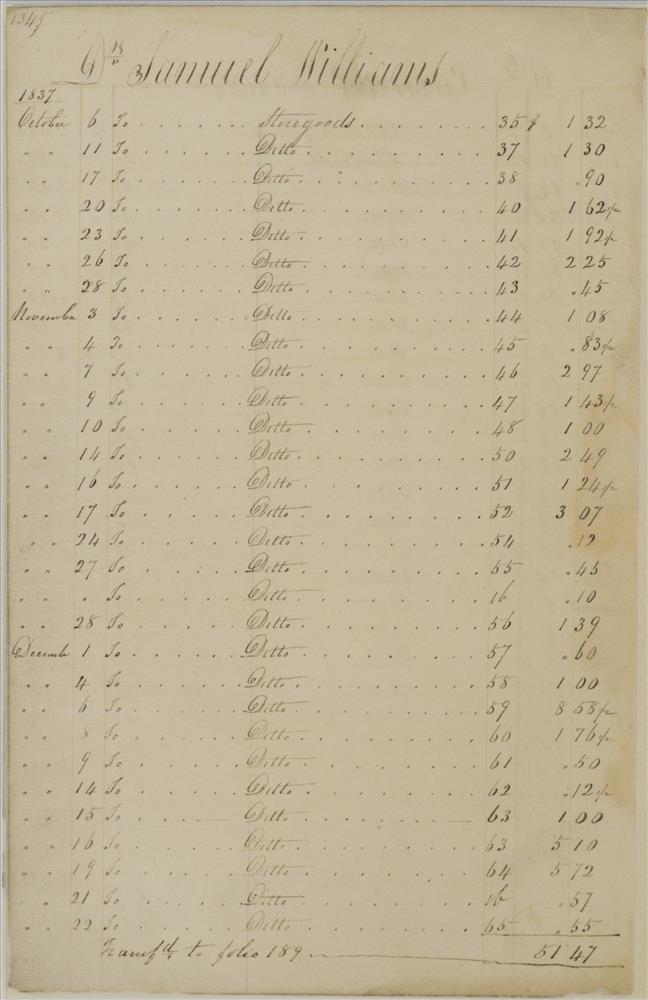 134
Drs Samuel Williams
1837
October 6 To . . . . . . . Storegoods . . . . . . . . 35 1 32
" " 11 To . . . . . . . Ditto . . . . . . . . 37 1 30
" " 17 To . . . . . . . Ditto . . . . . . . . 38 .90
" " 20 To . . . . . . . Ditto . . . . . . . . 40 1 62 1/2
" " 23 To . . . . . . . Ditto . . . . . . . . 41 1 92 1/2
" " 26 To . . . . . . . Ditto . . . . . . . . 42 2 25
" " 28 To . . . . . . . Ditto . . . . . . . . 43 .45
November 3 To . . . . . . . Ditto . . . . . . . . 44 1 08
" " 4 To . . . . . . . Ditto . . . . . . . . 45 .83 1/2
" " 7 To . . . . . . . Ditto . . . . . . . . 46 2 97
" " 9 To . . . . . . . Ditto . . . . . . . . 47 1 43 1/2
" " 10 To . . . . . . . Ditto . . . . . . . . 48 1 00
" " 14 To . . . . . . . Ditto . . . . . . . . 50 2 49
" " 16 To . . . . . . . Ditto . . . . . . . . 51 1 24 1/2
" " 17 To . . . . . . . Ditto . . . . . . . . 52 3 07
" " 24 To . . . . . . . Ditto . . . . . . . . 54 .12
" " 27 To . . . . . . . Ditto . . . . . . . . 55 .45
" " " To . . . . . . . Ditto . . . . . . . . ib .10
" " 28 To . . . . . . . Ditto . . . . . . . . 56 1 39
December 1 To . . . . . . . Ditto . . . . . . . . 57 .60
" " 4 To . . . . . . . Ditto . . . . . . . . 58 1 00
" " 6 To . . . . . . . Ditto . . . . . . . . 59 8 58 1/2
" " 8 To . . . . . . . Ditto . . . . . . . . 60 1 76 1/2
" " 9 To . . . . . . . Ditto . . . . . . . . 61 .50
" " 14 To . . . . . . . Ditto . . . . . . . . 62 .12 1/2
" " 15 To . . . . . . . Ditto . . . . . . . . 63 1 00
" " 16 To . . . . . . . Ditto . . . . . . . . 63 5 10
" " 19 To . . . . . . . Ditto . . . . . . . . 64 5 72
" " 21 To . . . . . . . Ditto . . . . . . . . ib .57
" " 22 To . . . . . . . Ditto . . . . . . . . 65 .55
Transfd to folio 189 51 47